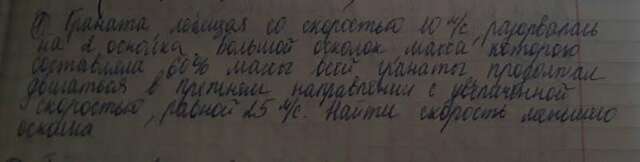 Граната летящая со скоростью 10 м/с, разорвалась
на 2 осколка. Большой осколок масса которого
составляла 60% массы всей гранаты продолжал
двигаться в прежнем направлении с увеличенной
скоростью, равной 25 м/с. Найти скорость меньшего
осколка